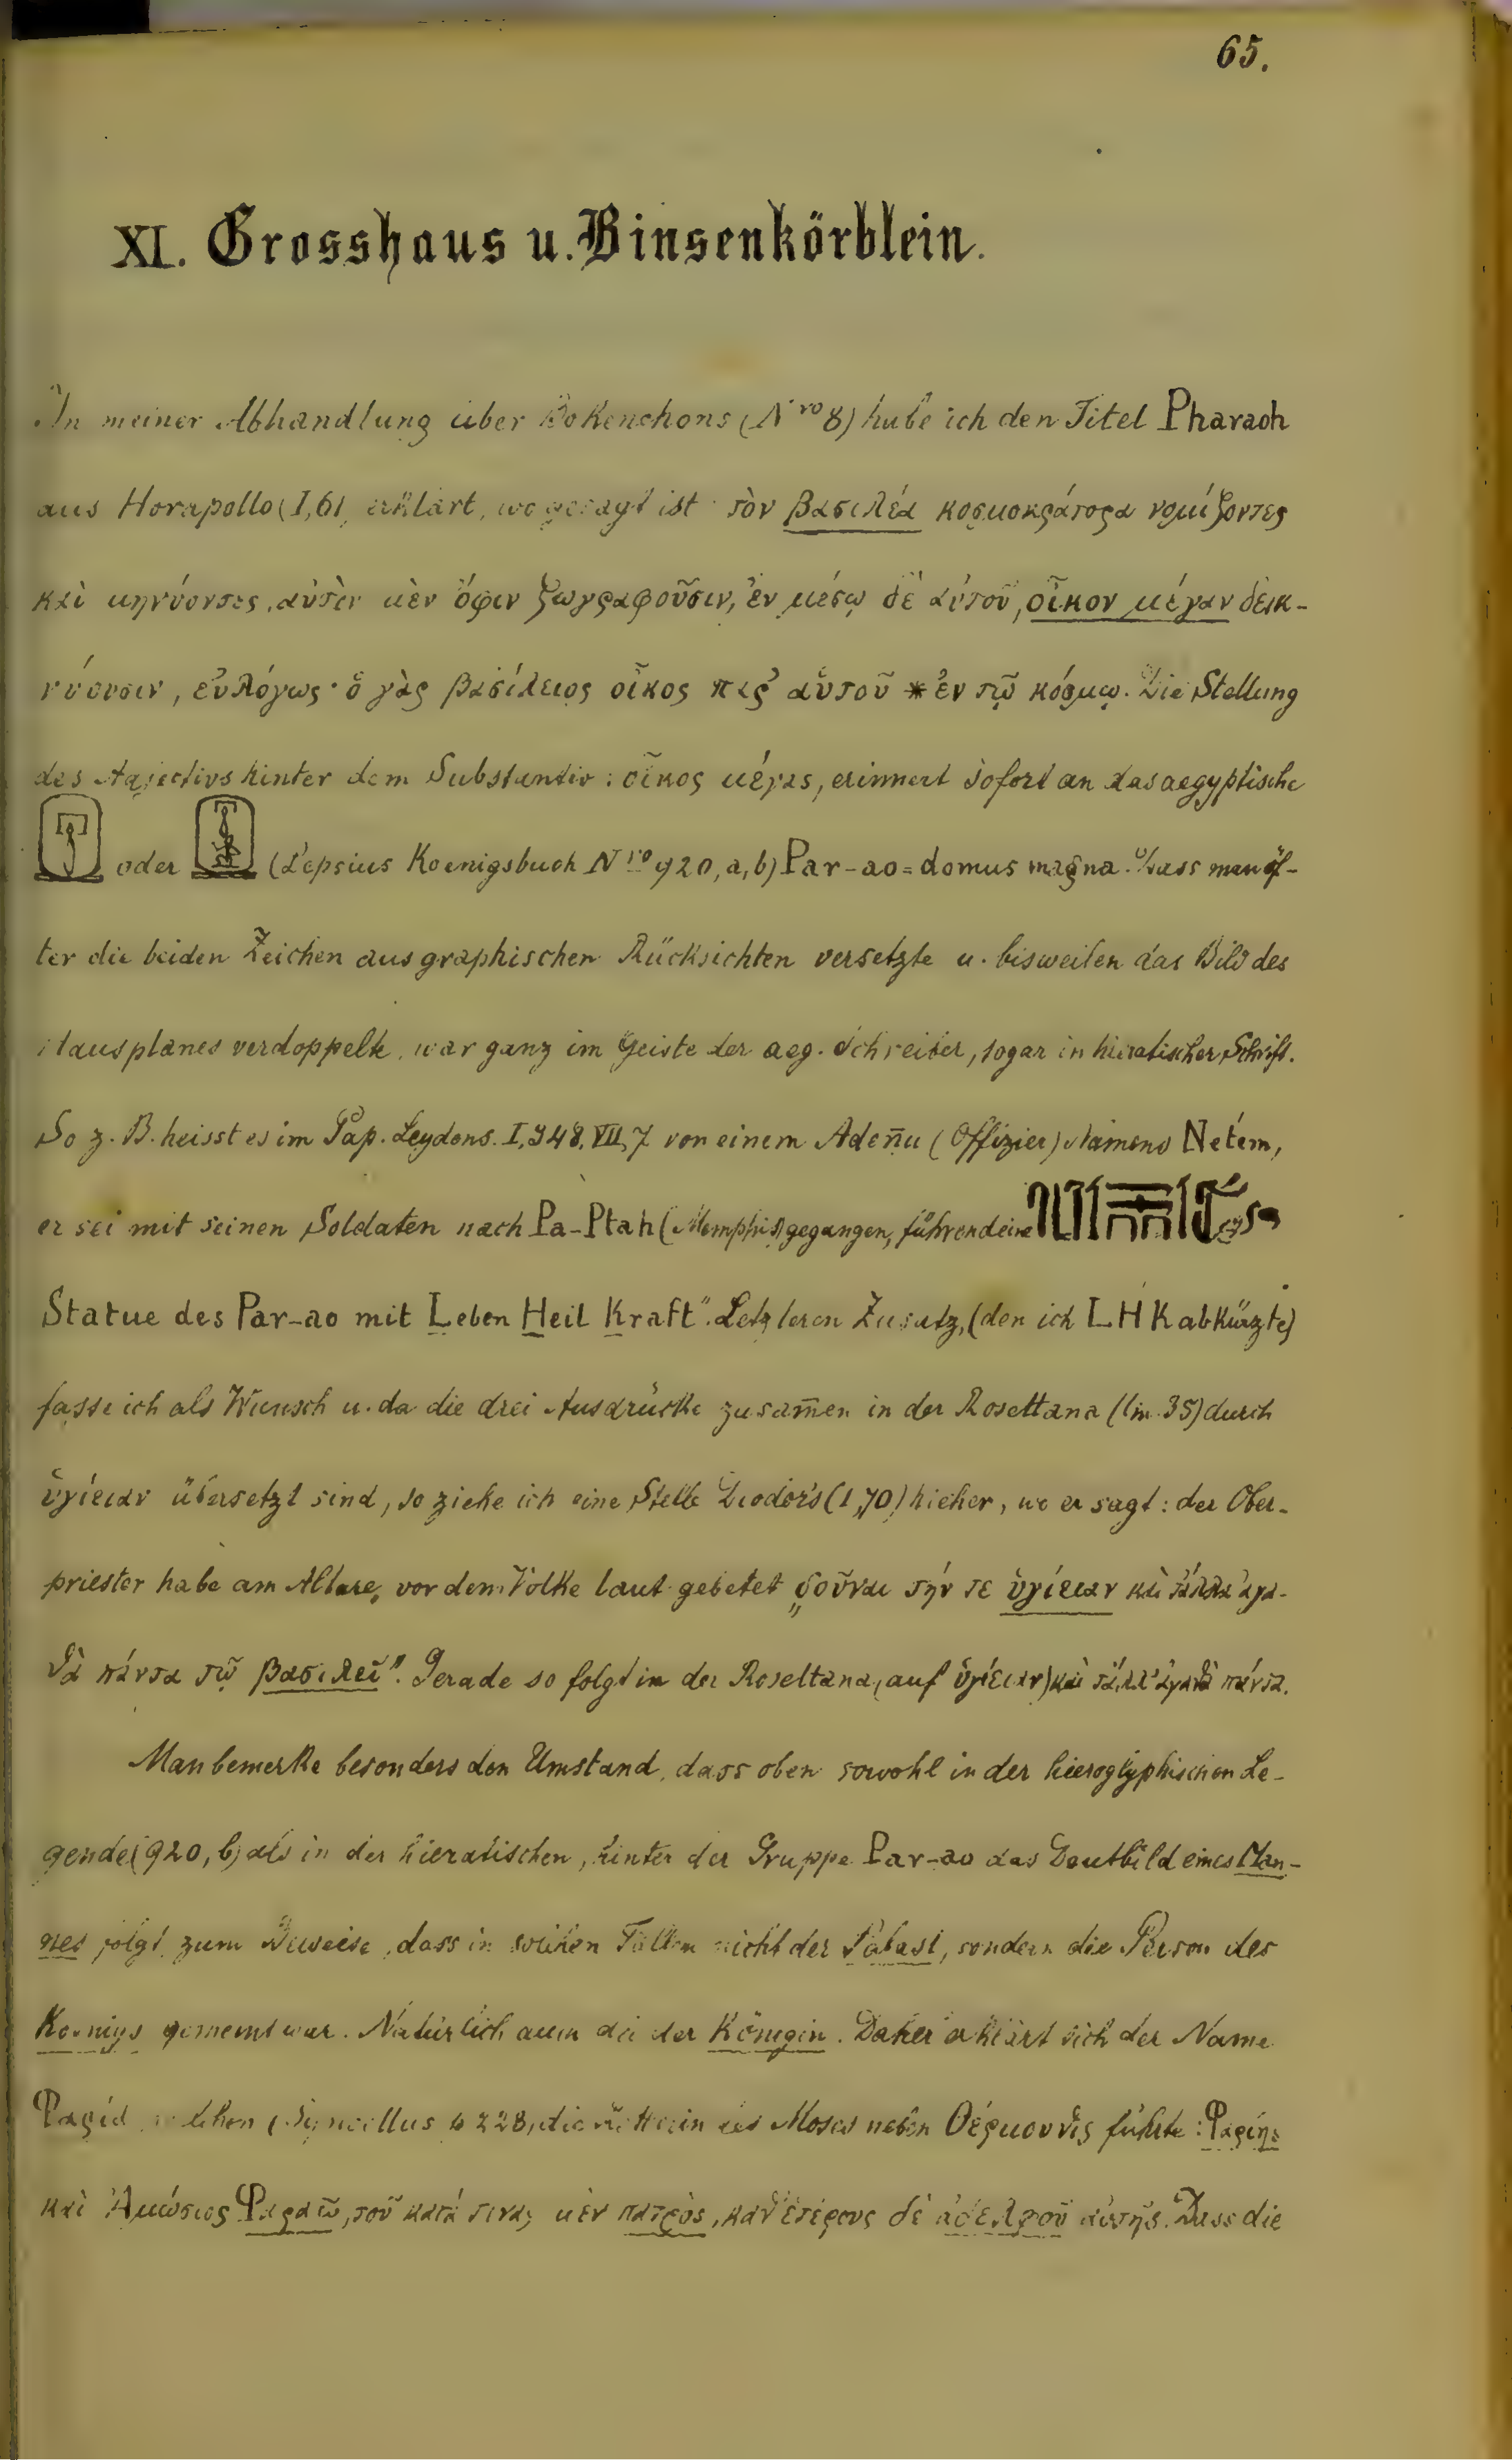 65.
XI. Grosshaus u. Binsenkörblein.
In meiner Abhandlung über Bokenchons (Nro 8) habe ich den Titel Pharaoh
aus Horapollo (I, 61) erklärt, wo gesagt ist: τὸν βασιλέα κοσμοκράτορα νομίζοντες
καὶ μηνύοντες, αὐτὸν μὲν ὄφιν ζωγραφοῦσιν, ἐν μέσῳ δὲ αὐτοῦ, οἶκον μέγαν δεικ-
νύουσιν, εὐλόγως· ὁ γὰρ βασίλειος οἶκος παρ' αὐτοῦ * ἐν τῷ κόσμῳ. Die Stellung
des Adjectivs hinter dem Substantiv: οἶκος μέγας, erinnert sofort an das aegyptische
oder (Lepsius Koenigsbuch Nro 920, a, b) Par-ao = domus magna. Dass man öf-
ter die beiden Zeichen aus graphischen Rücksichten versetzte u. bisweilen das Bild des
Hausplanes verdoppelte, war ganz im Geiste der aeg. Schreiber, sogar in hieratischer Schrift.
So z. B. heisst es im Pap. Leydens. I, 348, VII, 7 von einem Adeñu (Offizier) Namens Netém,
er sei mit seinen Soldaten nach Pa-Ptah (Memphis) gegangen, führend eine
Statue des Par-ao mit Leben Heil Kraft". Letzteren Zusatz, (den ich LHK abkürzte)
fasse ich als Wunsch u. da die drei Ausdrücke zusam̄en in der Rosettana (lin. 35) durch
ὑγίειαν übersetzt sind, so ziehe ich eine Stelle Diodor's (I, 70) hieher, wo er sagt: der Ober-
priester habe am Altare, vor dem Volke laut gebetet „δοῦναι τήν τε ὑγίειαν καὶ τἄλλα ἀγα-
θὰ πάντα τῷ βασιλεῖ". Gerade so folgt in der Rosettana, (auf ὑγίειαν) καὶ τἄλλ' ἀγαθὰ πάντα.
Man bemerke besonders den Umstand, dass oben sowohl in der hieroglyphischen Le-
gende (920, b) als in der hieratischen, hinter der Gruppe Par-ao das Deutbild eines Man-
nes folgt, zum Beweise, dass in solchen Fällen nicht der Palast, sondern die Person des
Koenigs gemeint war. Natürlich auch die der Königin. Daher erklärt sich der Name
Φαρίη welchen (Syncellus p 228) die Retterin des Moses neben Θέρμουθις führte: Φαρίης
καὶ Ἀμώσιος Φαραῶ, τοῦ κατά τινας μὲν πατρὸς, καθ' ἑτέρους δὲ ἀδελφοῦ αὐτῆς. Dass die